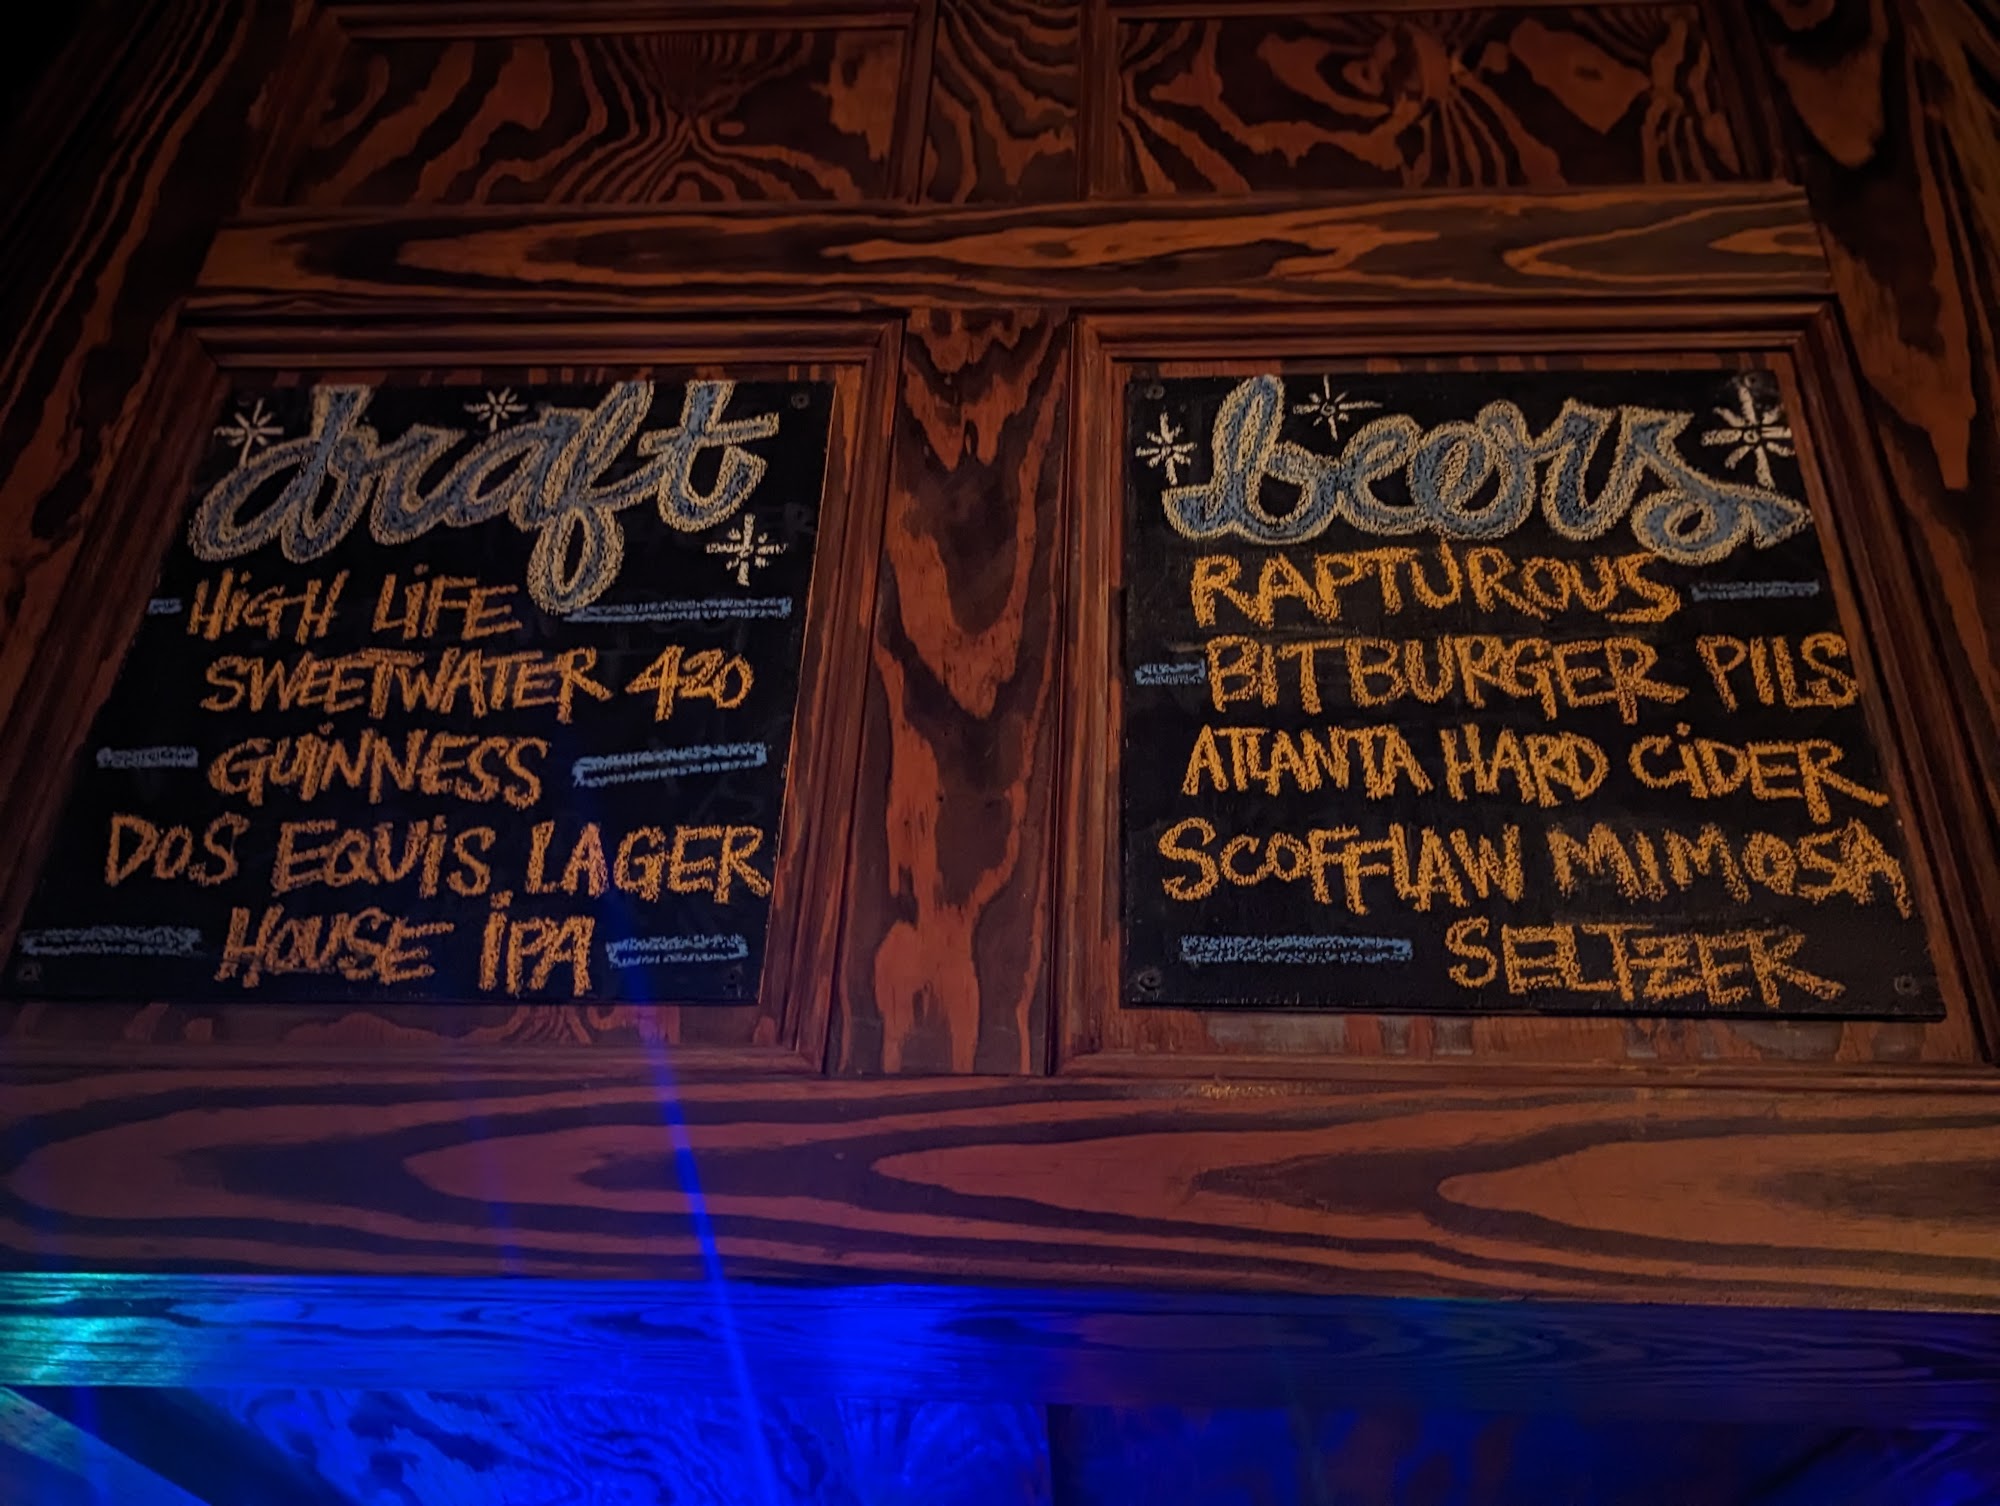 draft
HiGH LiFE
SWEETWATER 420
GUiNNESS
DOS EQUiS LAGER
HOUSE iPA
beers
RAPTUROUS
BITBURGER PILS
ATLANTA HARD CiDER
SCOFFLAW MIMOSA
SELTZER